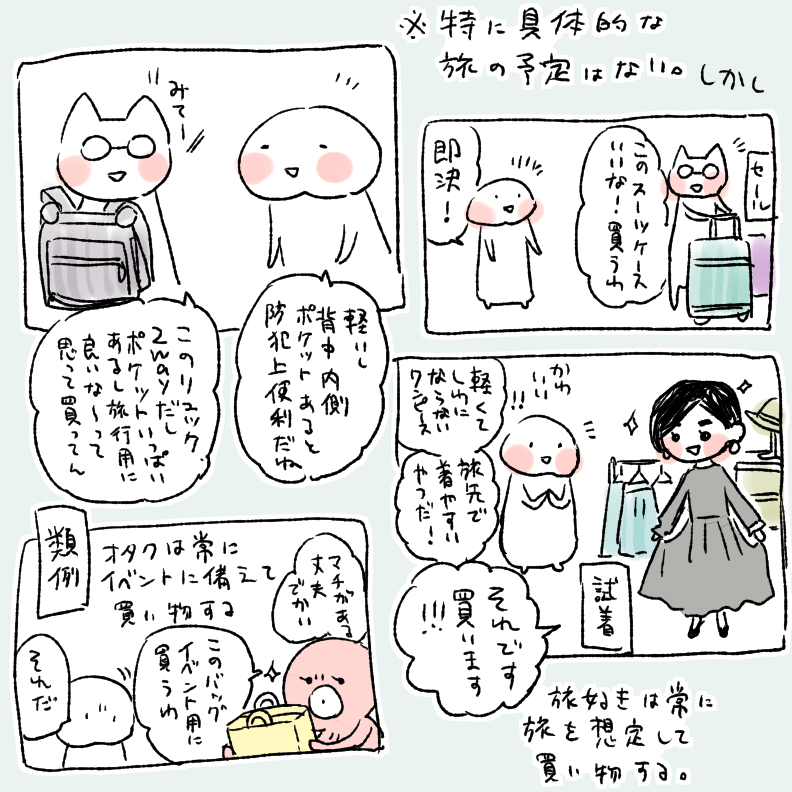 ※特に具体的な
旅の予定はない。しかし
セール
このスーツケース
いいな！買うわ
即決！
みてー
軽いし
背中内側
ポケットあると
防犯上便利だね
このリュック
2WAYだし
ポケットいっぱい
あるし旅行用に
良いな〜って
思って買ってん
かわ
いい
!!
軽くて
しわに
ならない
ワンピース
旅先で
着やすい
やつだ！
試着
それです
買います
!!!
類例
オタクは常に
イベントに備えて
買い物する
マチがある
丈夫
でかい
このバッグ
イベント用に
買うわ
それだ
旅好きは常に
旅を想定して
買い物する。